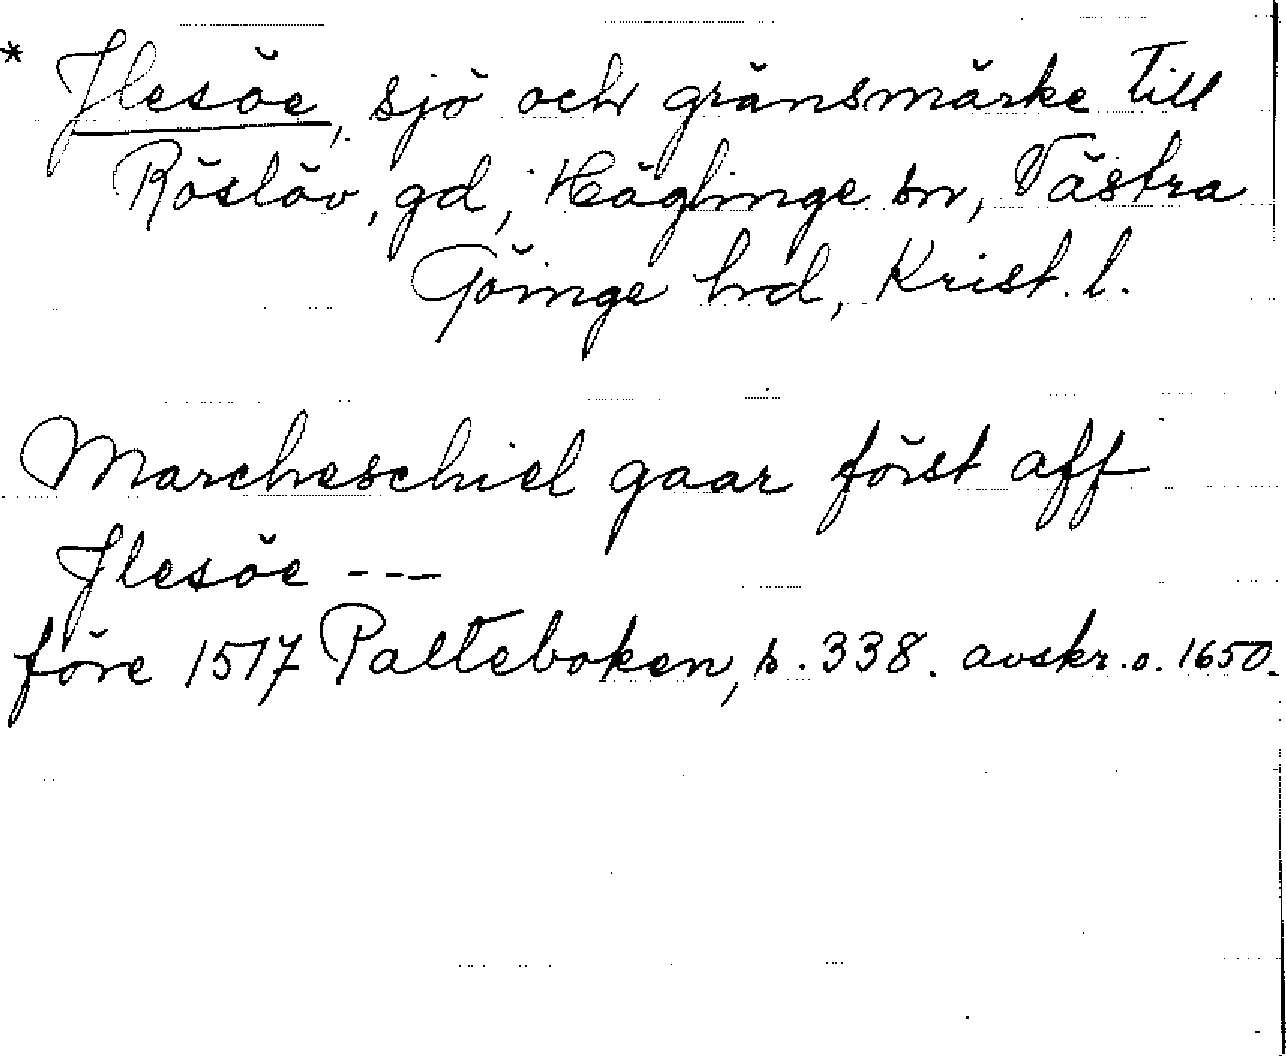 * Jlesöe, sjö och gränsmärke till
Röslöv, gd, Häglinge sn, Västra
Göinge hd, Krist. l.
Marcheschiel gaar först aff
Jlesöe ---
före 1517 Palteboken, s. 338. avskr. o. 1650.